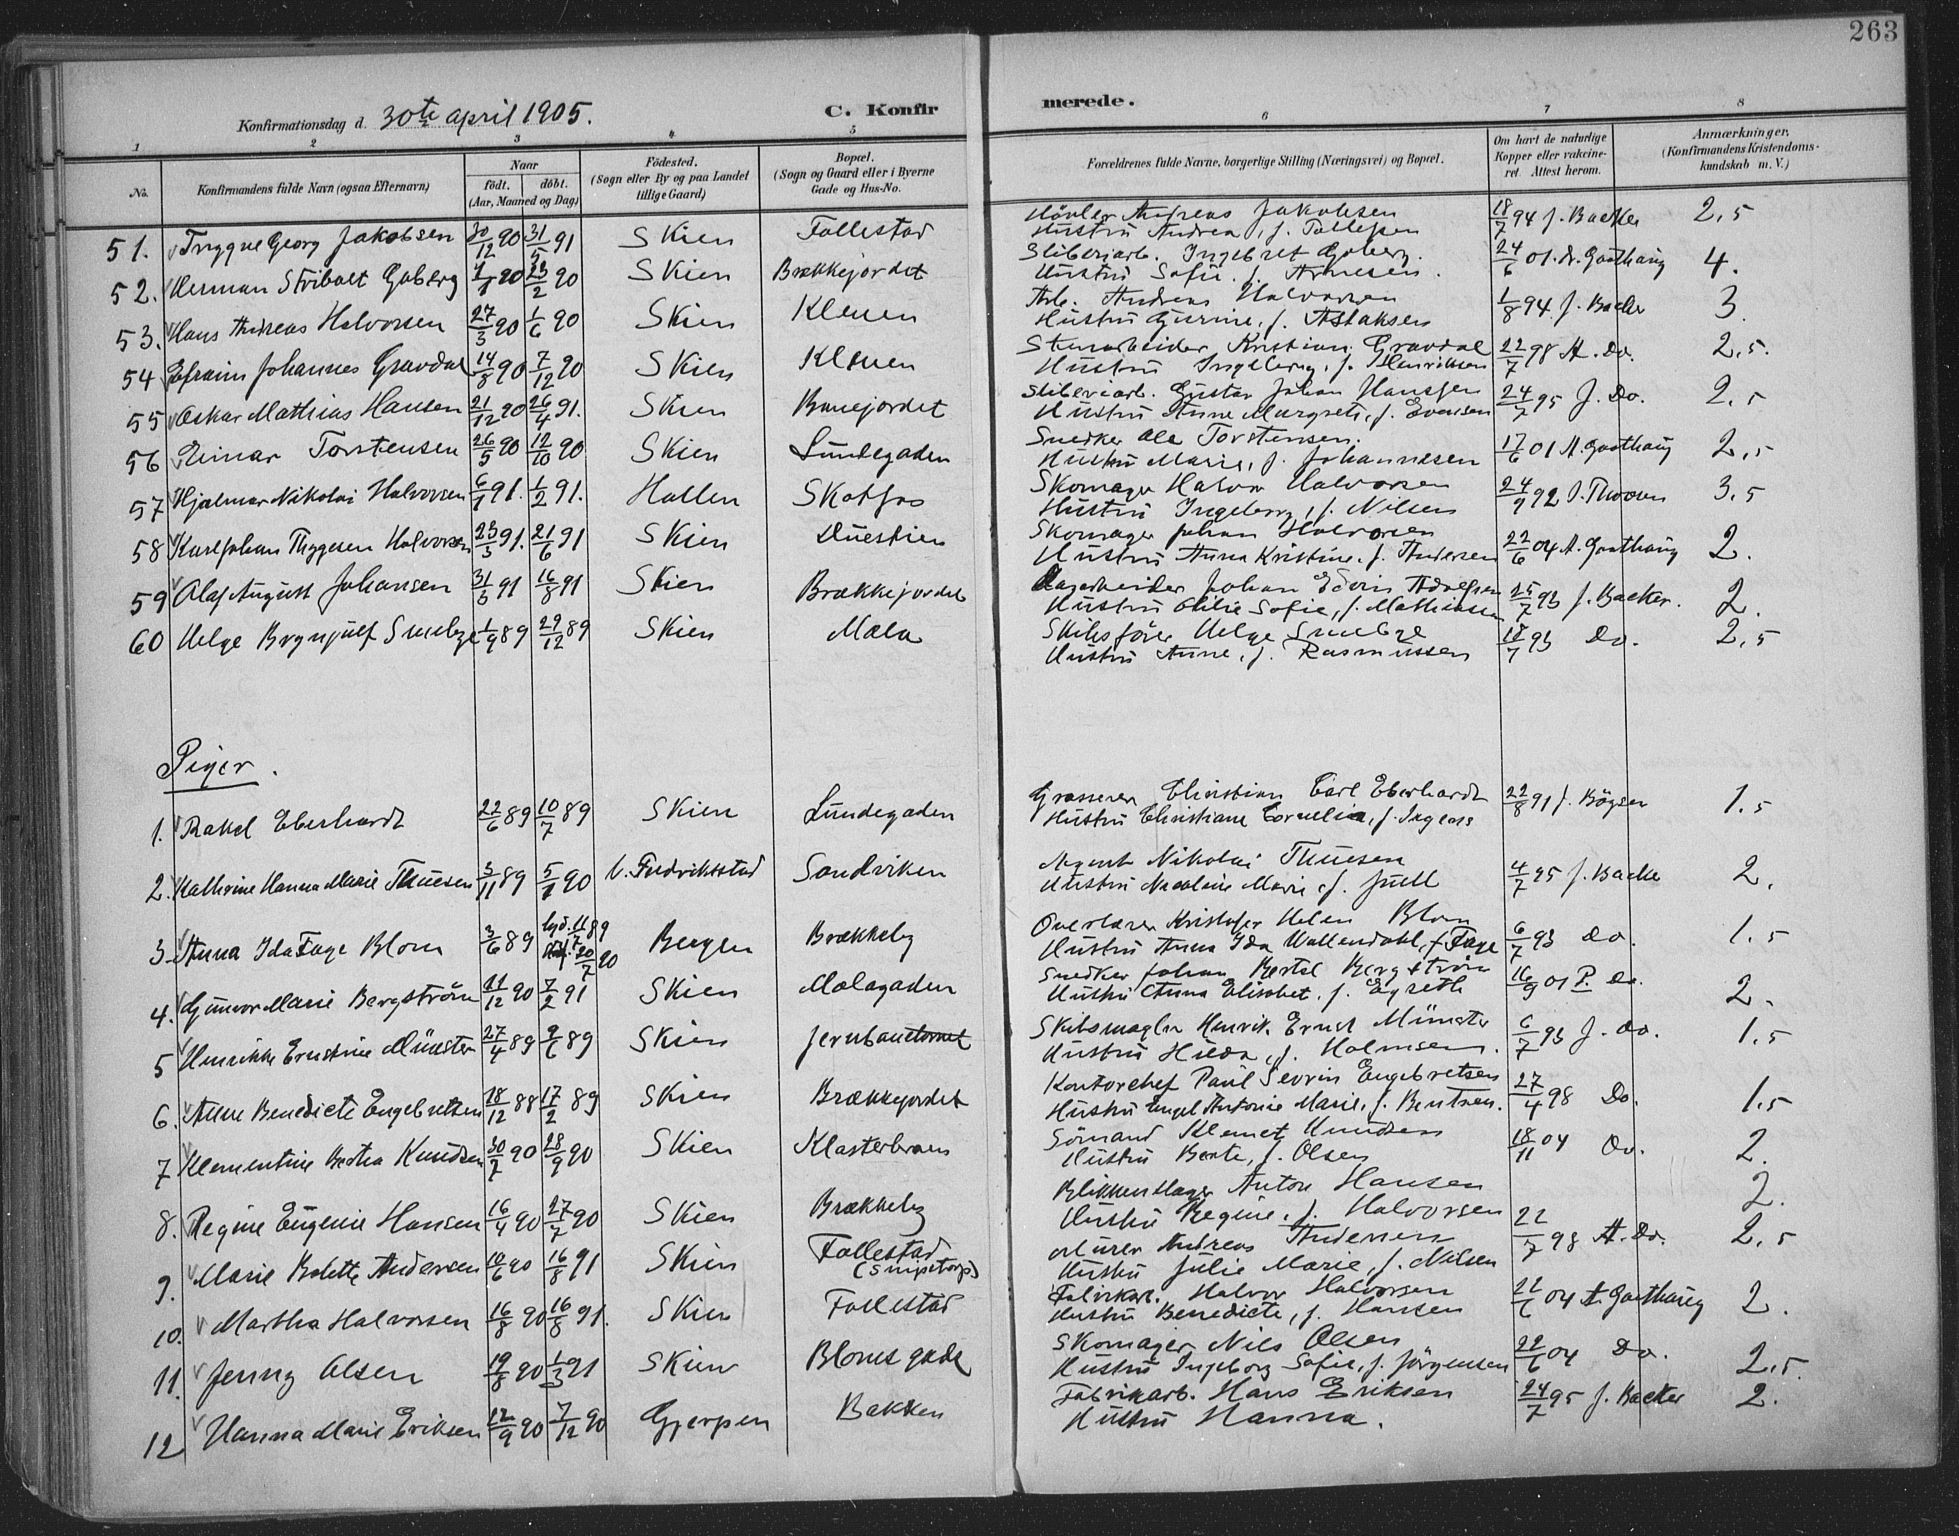 263
Konfirmationsdag d. 30te april 1905. C. Konfirmerede.
1 2 3 4 5 6 7 8
No. Konfirmandens fulde Navn (ogsaa Efternavn) Naar født. døbt. (Aar, Maaned og Dag) Fødested. (Sogn eller By og paa Landet tillige Gaard) Bopæl. (Sogn og Gaard eller i Byerne Gade og Hus-No. Forældrenes fulde Navne, borgerlige Stilling (Næringsvei) og Bopæl. Om havt de naturlige Kopper eller vakcineret. Attest herom. Anmærkninger. (Konfirmandens Kristendomskundskab m. V.)
51. Trygve Georg Jakobsen 30/12 90 31/5 91 Skien Follestad Høvler Andreas Jakobsen 18/7 94 J. Backer 2,5
Hustru Andrea, f. Tollefsen
52. Herman Stribolt Goberg 90 23/2 90 Skien Brækkejordet Sliberiarb. Ingebret Goberg. 24/6 01. A. Gaathaug 4.
Hustru Sofie f. Arnesen.
53. Hans Andreas Halvorsen 27/3 90 1/6 90 Skien Kleven Arb. Andreas Halvorsen 1/8 94. J. Backer 3
Hustru Gurine, f. Aslaksen
54 Efraim Johannes Gravdal 14/8 90 7/12 90 Skien Kleven Stenarbeider Kristian Gravdal 22/7 98 A. Do. 2,5.
Hustru Ingeborg, f. Henriksen
55 Oskar Mathias Hansen 21/12 90 26/4 91. Skien Bunejordet Sliberiarb. Gustav Johan Hansen 24/7 95 J. Do. 2,5
Hustru Anne Margrete, f. Evensen
56 Einar Torstensen 26/5 90 12/10 90 Skien Lundegaden Snedker Ole Torstensen. 17/6 01 A. Gaathaug 2,5
Hustru Marie, f. Johannesen
57 Hjalmar Nikolai Halvorsen 6/1 91. 1/2 91. Hollen Skotfos Skomager Halvor Halvorsen 24/9 92 J. 3,5
Hustru Ingeborg, f. Nilsen
58 Karl Johan Thygesen Halvorsen 23/3 91. 21/6 91 Skien Duestien Skomager Johan Halvorsen 22/6 04 A. Gaathaug 2.
Hustru Anna Kristine, f. Andersen
59 Olaf August Johansen 31/5 91 16/8 91 Skien Brækkejordet Dagarbeider Johan Edvin Adolfsen 25/7 93 J. Backer. 2.
Hustru Otilie Sofie, f. Mathiasen
60 Helge Brynjulf Smebye 1/9 89 29/12 89 Skien Mæla Skibsfører Helge Smebye 18/7 93 Do. 2,5
Hustru Anne, f. Rasmussen
Piger.
1. Rakel Eberhardt 22/6 89 10/7 89 Skien Lundegaden Grosserer Christian Carl Eberhardt 22/8 91 J. Bøgsen 1.5
Hustru Christiane Cornelia, f.
2. Kathrine Hanna Marie Thuesen 3/11 89 5/1 90 V. Fredrikstad Sandviken Agent Nikolai Thuesen 4/7 95 J. Backer 2.
Hustru Nicoline Marie f. Juell
3. Anna Ida Faye Blom 3/6 89 11/7 89 20/7 90 Bergen Brækkeby Overlærer Kristofer Blom 6/7 93 Do. 1.5
Hustru Anna Ida Wallendahl, f. Faye
4. Gunvor Marie Bergström 11/12 90 7/2 91 Skien Mælagaden Snedker Johan Bertel Bergström 16/9 01 P. Do. 2.
Hustru Anna Elisabet, f. Egreth
5 Henrikke Ernstine Münster 27/4 89 9/6 89 Skien Jernbanetorvet Skibsmægler Henrik Ernst Münster 6/7 93 J. Do. 1.5
Hustru Hilda, f. Holmsen.
6. Anne Benedicte Engebretsen 18/12 88 17/2 89 Skien Brækkejordet Kontorchef Paul Severin Engebretsen 27/4 98 Do. 1.5
Hustru Engel Antonie Marie, f. Bentzen.
7 Klementine Bertha Knudsen 30/7 90 28/9 90 Skien Klosterbroen Sömand Klemet Knudsen 18/11 04 Do. 2.
Hustru Berte, f. Olsen
8. Regine Eugenie Hansen 16/4 90 27/7 90 Skien Brækkeby Blikkenslager Anton Hansen 2.
Hustru Regine, f. Halvorsen
9. Marie Bolette Andersen 90 16/8 91 Skien Follestad (Snipetorp) Murer Andreas Andersen 22/7 98 A. Do. 2,5
Hustru Julie Marie, f. Nilsen
10. Martha Halvorsen 16/8 90 16/8 91. Skien Follestad Fabrikarb. Halvor Halvorsen 22/6 04 A. Gaathaug 2.
Hustru Benedicte, f. Hansen
11. Jenny Olsen 19/8 90 1/3 91 Skien Bloms gade Skomager Nils Olsen 22/6 04 Do. 2,5.
Hustru Ingeborg Sofie, f. Jörgensen
12 Hanna Marie Eriksen 12/9 90 7/12 90 Gjerpen Bakken Fabrikarb. Hans Eriksen 24/7 95 J. Backer 2.
Hustru Hanna.